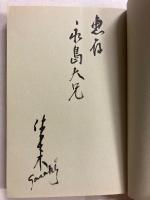 惠存
永島大兄
佐々木
Sasaki